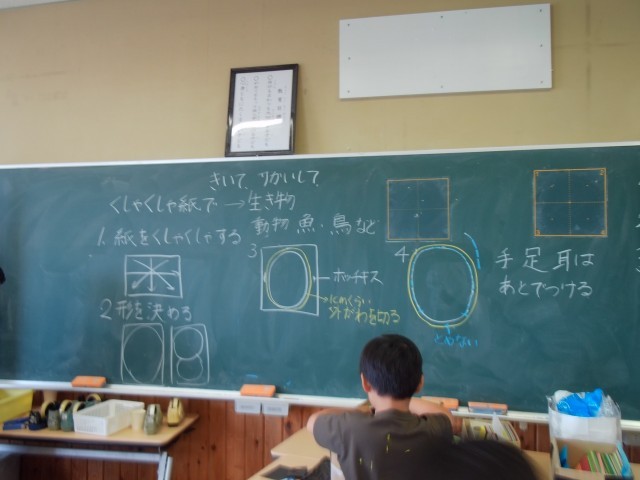 きいて、りかいして
くしゃくしゃ紙で→生き物
動物 魚・鳥など
1.紙をくしゃくしゃする
2形を決める
3
ホッチキス
外がわを切る
4
とめない
手足耳は
あとでつける